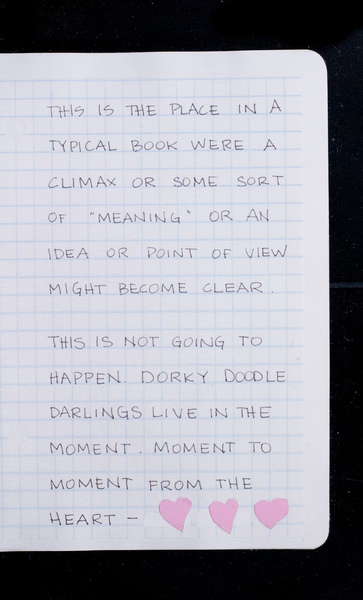 THIS IS THE PLACE IN A
TYPICAL BOOK WERE A
CLIMAX OR SOME SORT
OF "MEANING" OR AN
IDEA OR POINT OF VIEW
MIGHT BECOME CLEAR.
THIS IS NOT GOING TO
HAPPEN. DORKY DOODLE
DARLINGS LIVE IN THE
MOMENT. MOMENT TO
MOMENT FROM THE
HEART –